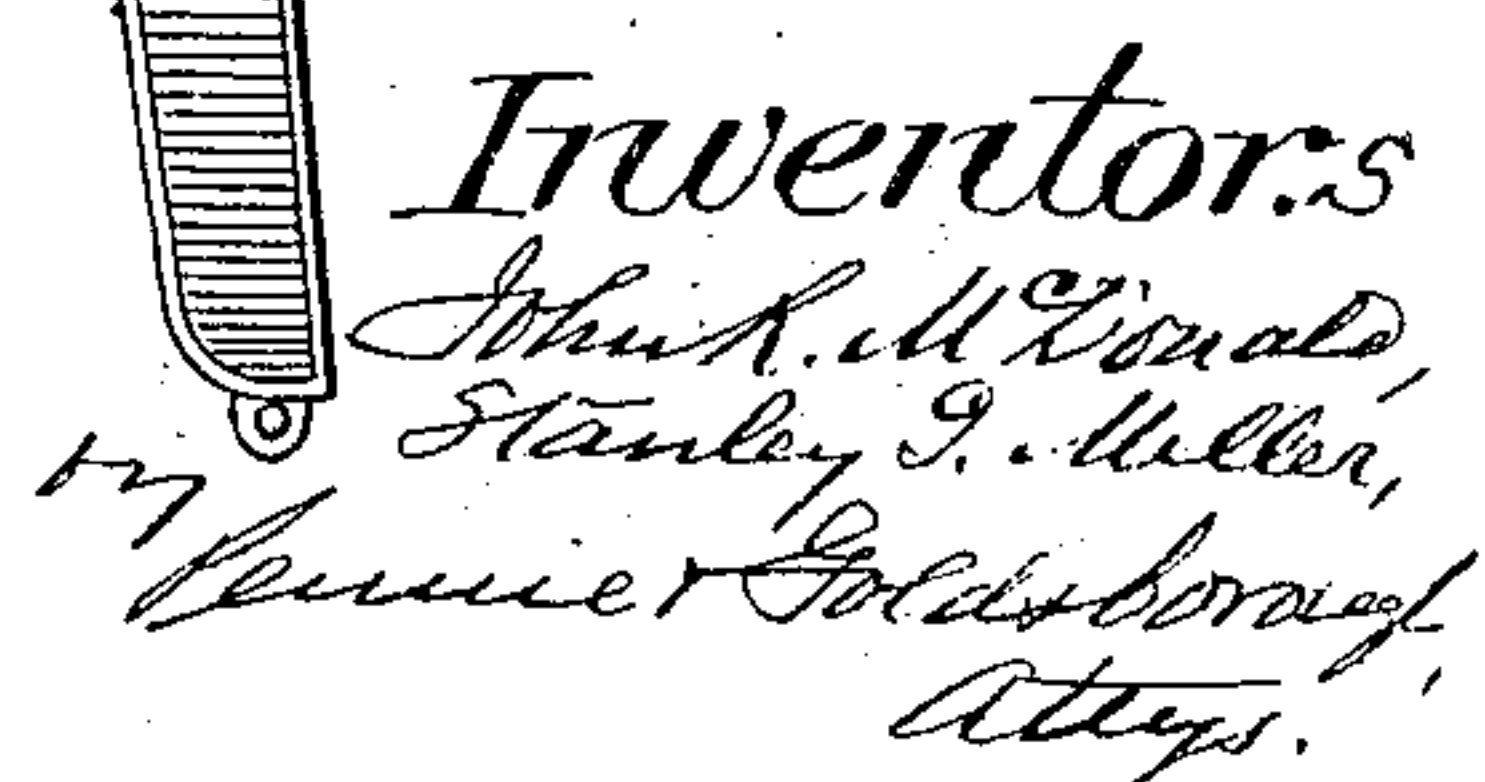 Inventor.s
John R. McDonald,
Stanley I. Miller,
by
Pennie & Goldsborough,
Attys.